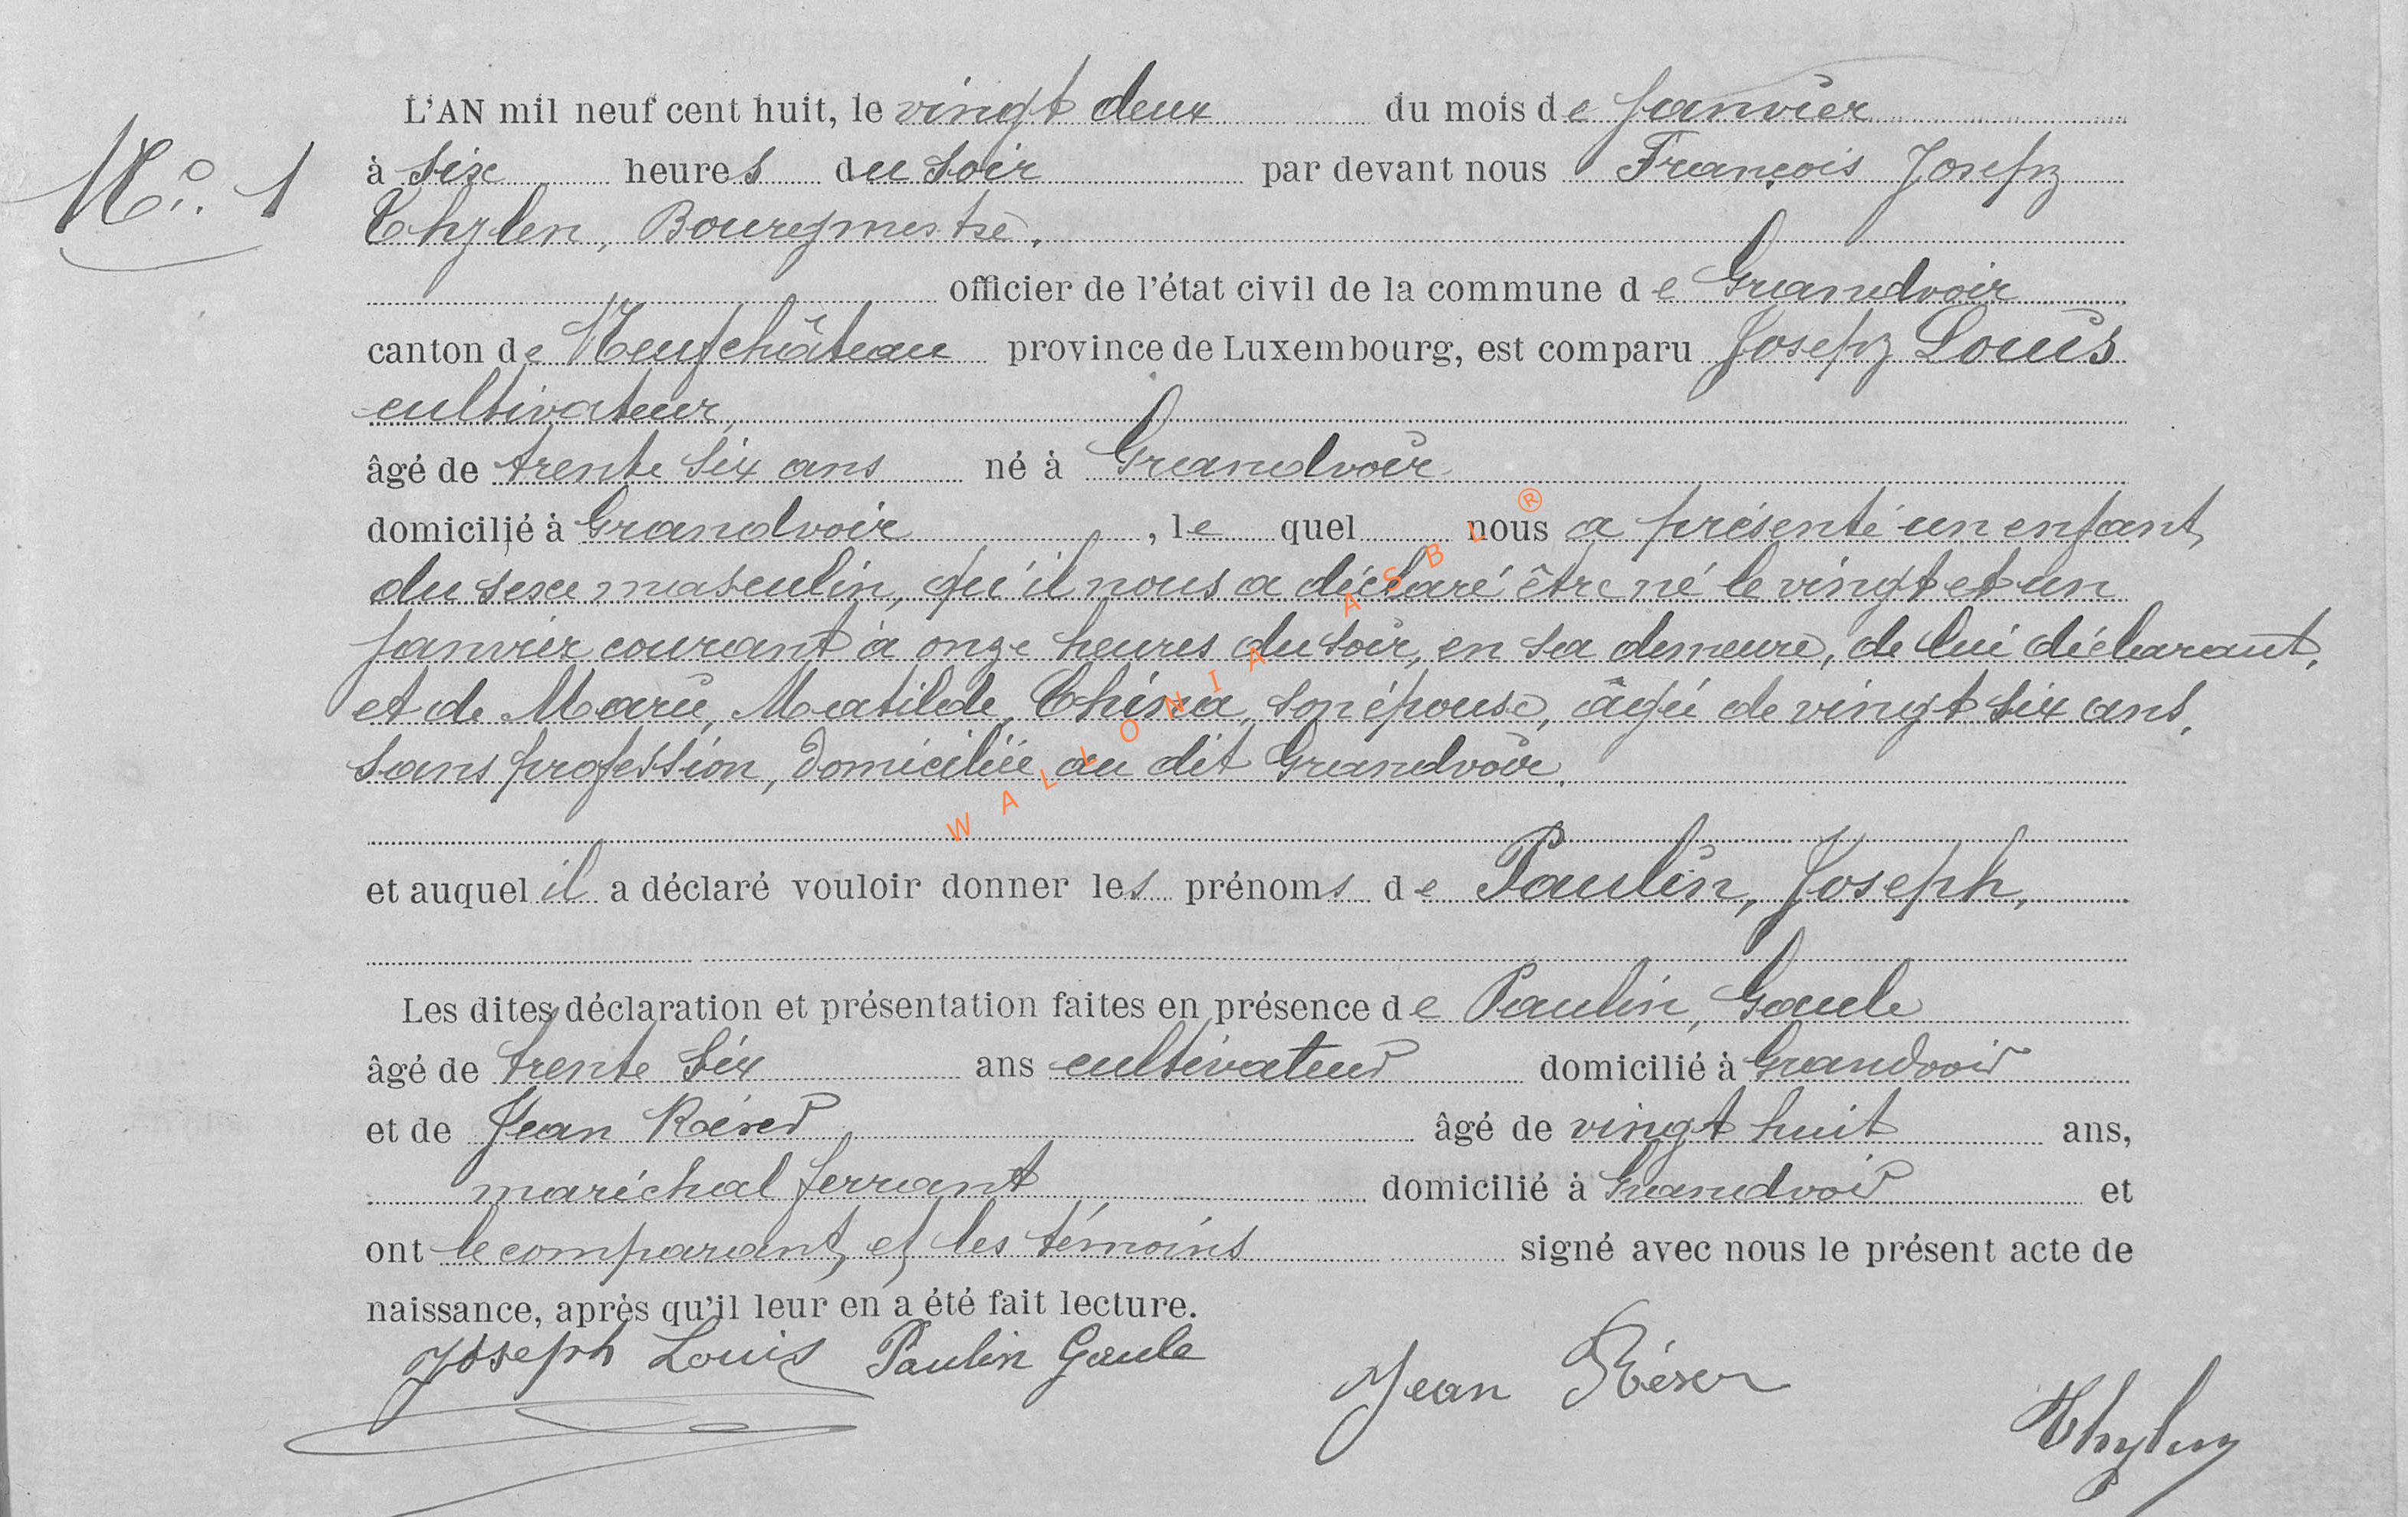 L'AN mil neuf cent huit, le vingt deux du mois de Janvier
N° 1
à sixe heures du soir par devant nous François Joseph
Thylen, Bourgmestre,
officier de l'état civil de la commune de Grandvoir
canton de Neufchâteau province de Luxembourg, est comparu Joseph Louis
cultivateur
âgé de trente six ans né à Grandvoir
domicilié à Grandvoir, le quel nous a présenté un enfant
du sexe masculin, qu'il nous a déclaré être né le vingt et un
Janvier courant à onze heures du soir, en sa demeure, de lui déclarant,
et de Marie, Matilde, son épouse, âgée de vingt six ans,
sans profession, domiciliée au dit Grandvoir.
WALLONIA ASBL ®
et auquel il a déclaré vouloir donner les prénoms de Paulin, Joseph,
Les dites déclaration et présentation faites en présence de Paulin, Gaule
âgé de trente six ans cultivateur domicilié à Grandvoir
et de Jean Réser âgé de vingt huit ans,
maréchal ferrant domicilié à Grandvoir et
ont le comparant, et les témoins signé avec nous le présent acte de
naissance, après qu'il leur en a été fait lecture.
Joseph Louis Paulin Gaule
Jean Réser
Thylen